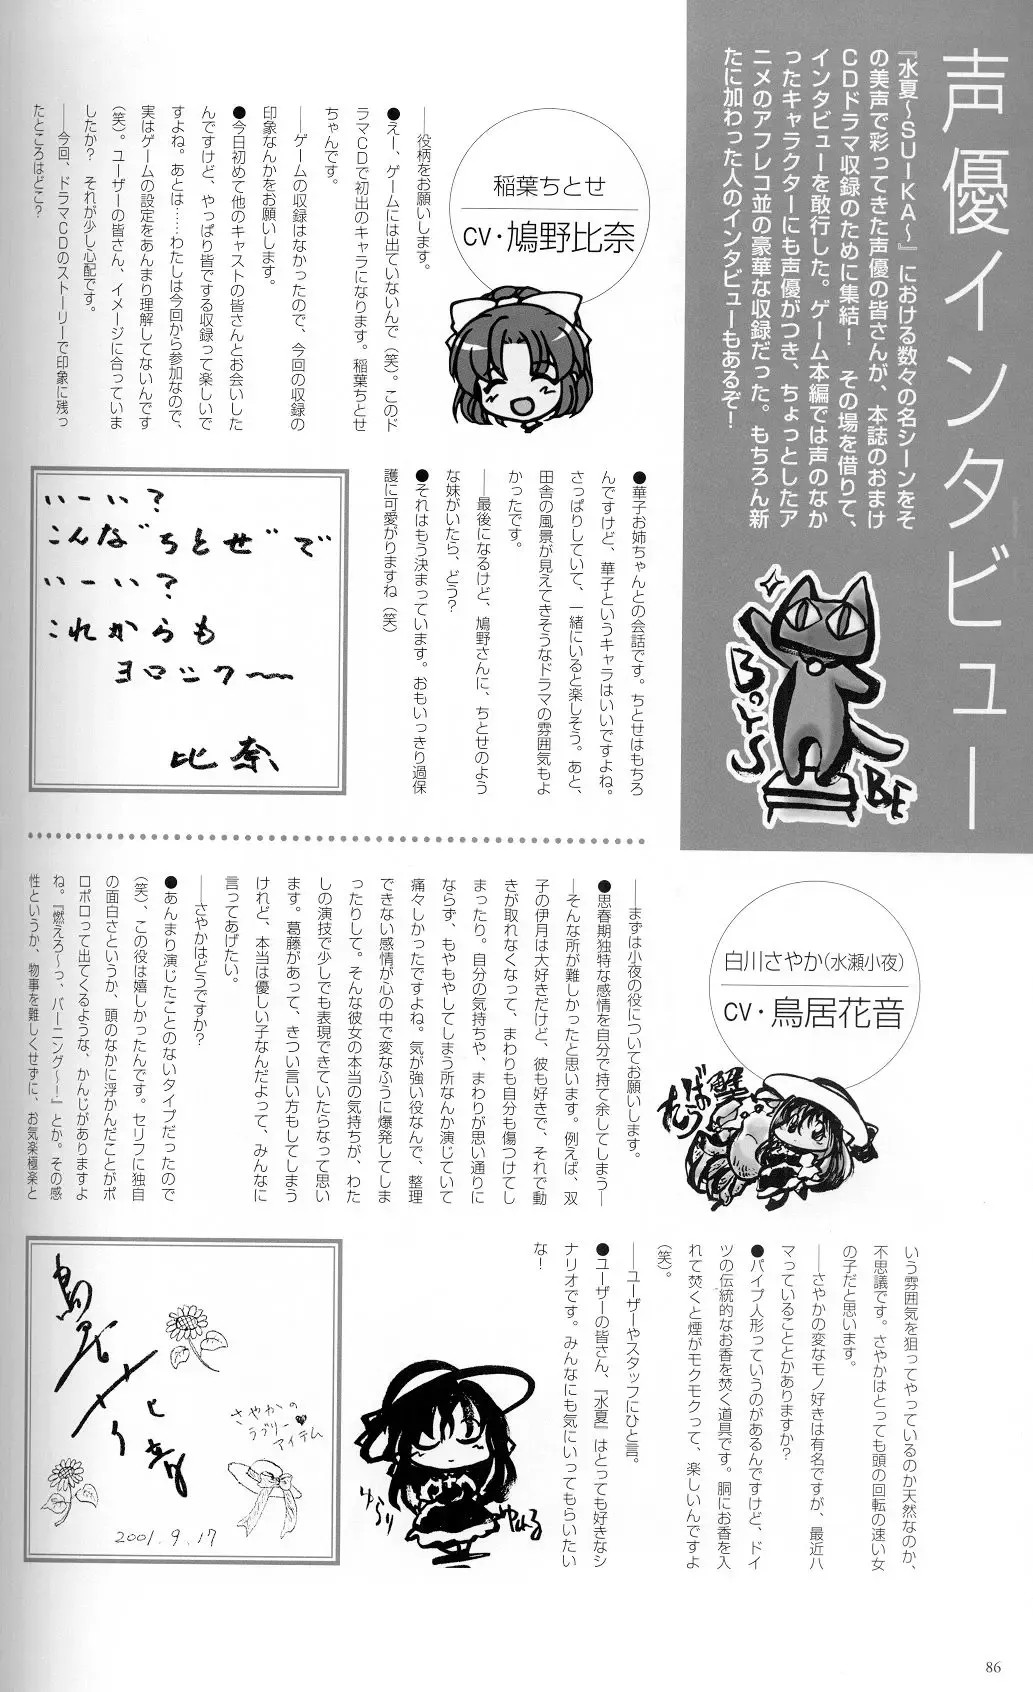 声優インタビュー
『水夏～SUIKA～』における数々の名シーンをそ
の美声で彩ってきた声優の皆さんが、本誌のおまけ
CDドラマ収録のために集結！　その場を借りて、
インタビューを敢行した。ゲーム本編では声のなか
ったキャラクターにも声優がつき、ちょっとしたア
ニメのアフレコ並の豪華な収録だった。もちろん新
たに加わった人のインタビューもあるぞ！
BoyS
BE
稲葉ちとせ
CV・鳩野比奈
――役柄をお願いします。
●えー、ゲームには出ていないんで（笑）。このド
ラマCDで初出のキャラになります。稲葉ちとせ
ちゃんです。
――ゲームの収録はなかったので、今回の収録の
印象なんかをお願いします。
●今日初めて他のキャストの皆さんとお会いした
んですけど、やっぱり皆でする収録って楽しいで
すよね。あとは……わたしは今回から参加なので、
実はゲームの設定をあんまり理解してないんです
（笑）。ユーザーの皆さん、イメージに合っていま
したか？　それが少し心配です。
――今回、ドラマCDのストーリーで印象に残っ
たところはどこ？
●華子お姉ちゃんとの会話です。ちとせはもちろ
んですけど、華子というキャラはいいですよね。
さっぱりしていて、一緒にいると楽しそう。あと、
田舎の風景が見えてきそうなドラマの雰囲気もよ
かったです。
――最後になるけど、鳩野さんに、ちとせのよう
な妹がいたら、どう？
●それはもう決まっています。おもいっきり過保
護に可愛がりますね（笑）
いーい？
こんな"ちとせ"で
いーい？
これからも
ヨロシク～～
比奈
白川さやか（水瀬小夜）
CV・鳥居花音
蟹
ばたう
――まずは小夜の役についてお願いします。
●思春期独特な感情を自分で持て余してしまう―
―そんな所が難しかったと思います。例えば、双
子の伊月は大好きだけど、彼も好きで、それで動
きが取れなくなって、まわりも自分も傷つけてし
まったり。自分の気持ちや、まわりが思い通りに
ならず、もやもやしてしまう所なんか演じていて
痛々しかったですよね。気が強い役なんで、整理
できない感情が心の中で変なふうに爆発してしま
ったりして。そんな彼女の本当の気持ちが、わた
しの演技で少しでも表現できていたらなって思い
ます。葛藤があって、きつい言い方もしてしまう
けれど、本当は優しい子なんだよって、みんなに
言ってあげたい。
――さやかはどうですか？
●あんまり演じたことのないタイプだったので
（笑）、この役は嬉しかったんです。セリフに独自
の面白さというか、頭のなかに浮かんだことがポ
ロポロって出てくるような、かんじがありますよ
ね。『燃えろ～っ、バーニング～！』とか。その感
性というか、物事を難しくせずに、お気楽極楽と
いう雰囲気を狙ってやっているのか天然なのか、
不思議です。さやかはとっても頭の回転の速い女
の子だと思います。
――さやかの変なモノ好きは有名ですが、最近ハ
マっていることとかありますか？
●パイプ人形っていうのがあるんですけど、ドイ
ツの伝統的なお香を焚く道具です。胴にお香を入
れて焚くと煙がモクモクって、楽しいんですよ
（笑）。
――ユーザーやスタッフにひと言。
●ユーザーの皆さん、『水夏』はとっても好きなシ
ナリオです。みんなにも気にいってもらいたい
な！
さやかの
ラブリー♥
アイテム
2001.9.17
86